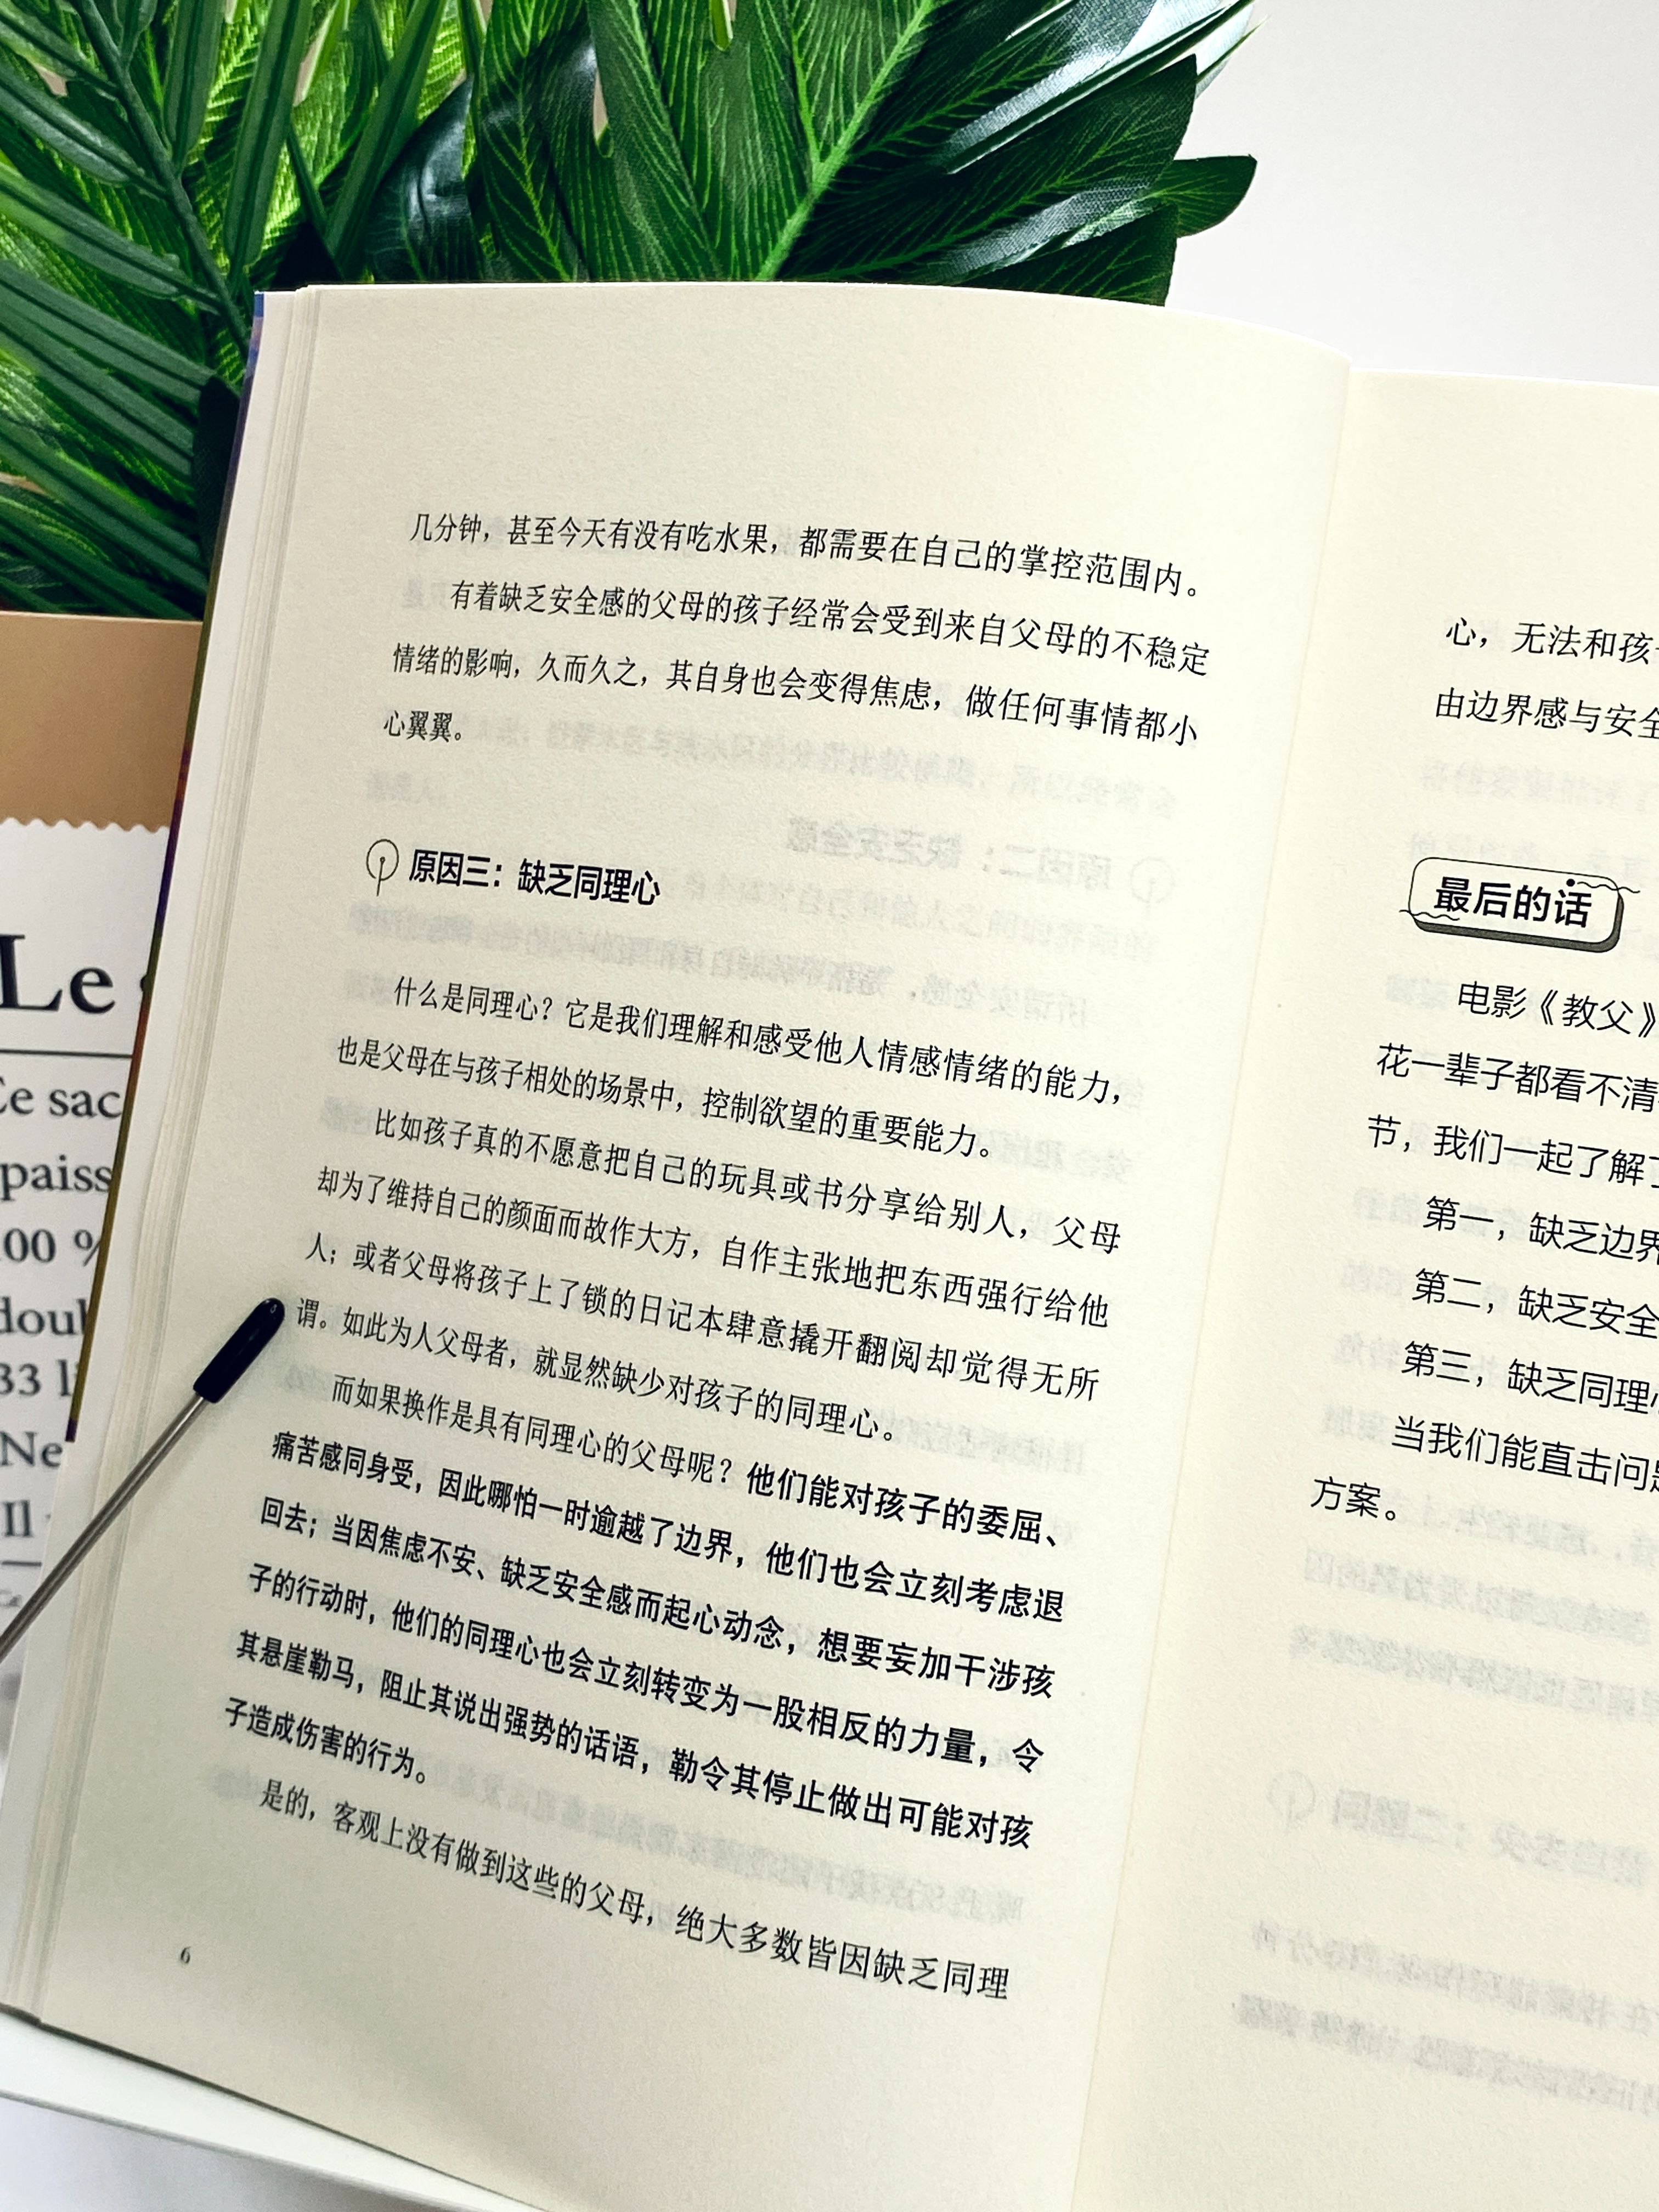 几分钟，甚至今天有没有吃水果，都需要在自己的掌控范围内。
有着缺乏安全感的父母的孩子经常会受到来自父母的不稳定
情绪的影响，久而久之，其自身也会变得焦虑，做任何事情都小
心翼翼。
原因三：缺乏同理心
什么是同理心？它是我们理解和感受他人情感情绪的能力，
也是父母在与孩子相处的场景中，控制欲望的重要能力。
比如孩子真的不愿意把自己的玩具或书分享给别人，父母
却为了维持自己的颜面而故作大方，自作主张地把东西强行给他
人；或者父母将孩子上了锁的日记本肆意撬开翻阅却觉得无所
谓。如此为人父母者，就显然缺少对孩子的同理心。
而如果换作是具有同理心的父母呢？他们能对孩子的委屈、
痛苦感同身受，因此哪怕一时逾越了边界，他们也会立刻考虑退
回去；当因焦虑不安、缺乏安全感而起心动念，想要妄加干涉孩
子的行动时，他们的同理心也会立刻转变为一股相反的力量，令
其悬崖勒马，阻止其说出强势的话语，勒令其停止做出可能对孩
子造成伤害的行为。
是的，客观上没有做到这些的父母，绝大多数皆因缺乏同理
6
心，无法和孩
由边界感与安全
最后的话
电影《教父》
花一辈子都看不清
节，我们一起了解了
第一，缺乏边界
第二，缺乏安全
第三，缺乏同理心
当我们能直击问题
方案。
Le
Ce sac
paiss
00 %
doub
33 li
Ne
Il